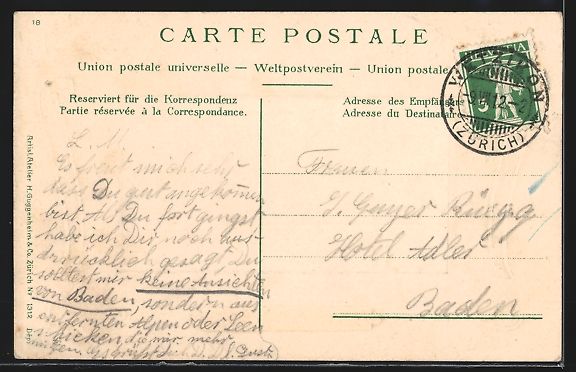 18
CARTE POSTALE
Union postale universelle — Weltpostverein — Union postale
Reserviert für die Korrespondenz
Partie réservée à la Correspondance.
Adresse des Empfängers
Adresse du Destinataire
HELVETIA
WETZIKON
(ZÜRICH)
Artist. Atelier H. Guggenheim & Co., Zürich Nr. 1312 Dep.
L. M.
Es freut mich sehr
dass Du gut angekommen
bist. Als Du fort gingst
habe ich Dir noch aus-
drücklich gesagt, Du
solltest mir keine Ansichten
von Baden, sondern aus
entfernten Alpen oder Seen
schicken, die mir mehr
Frauen
Guyer Rüegg
Hotel Adler
Baden